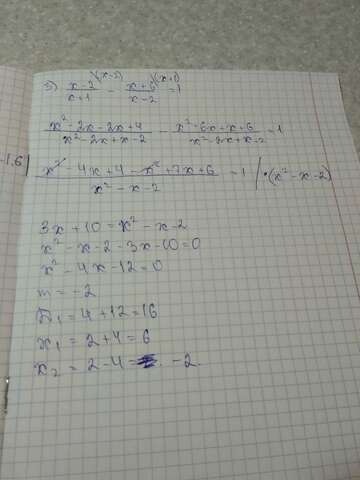 \(x-2) \(x+1)
3) x-2/x+1 - x+6/x-2 = 1
x²-2x-2x+4/x²-2x+x-2 - x²+6x+x+6/x²-2x+x-2 = 1
-1.6
x²-4x+4-x²+7x+6/x²-x-2 = 1 | •(x²-x-2)
3x+10=x²-x-2
x²-x-2-3x-10=0
x²-4x-12=0
m=-2
D₁=4+12=16
x₁=2+4=6
x₂=2-4= -2.